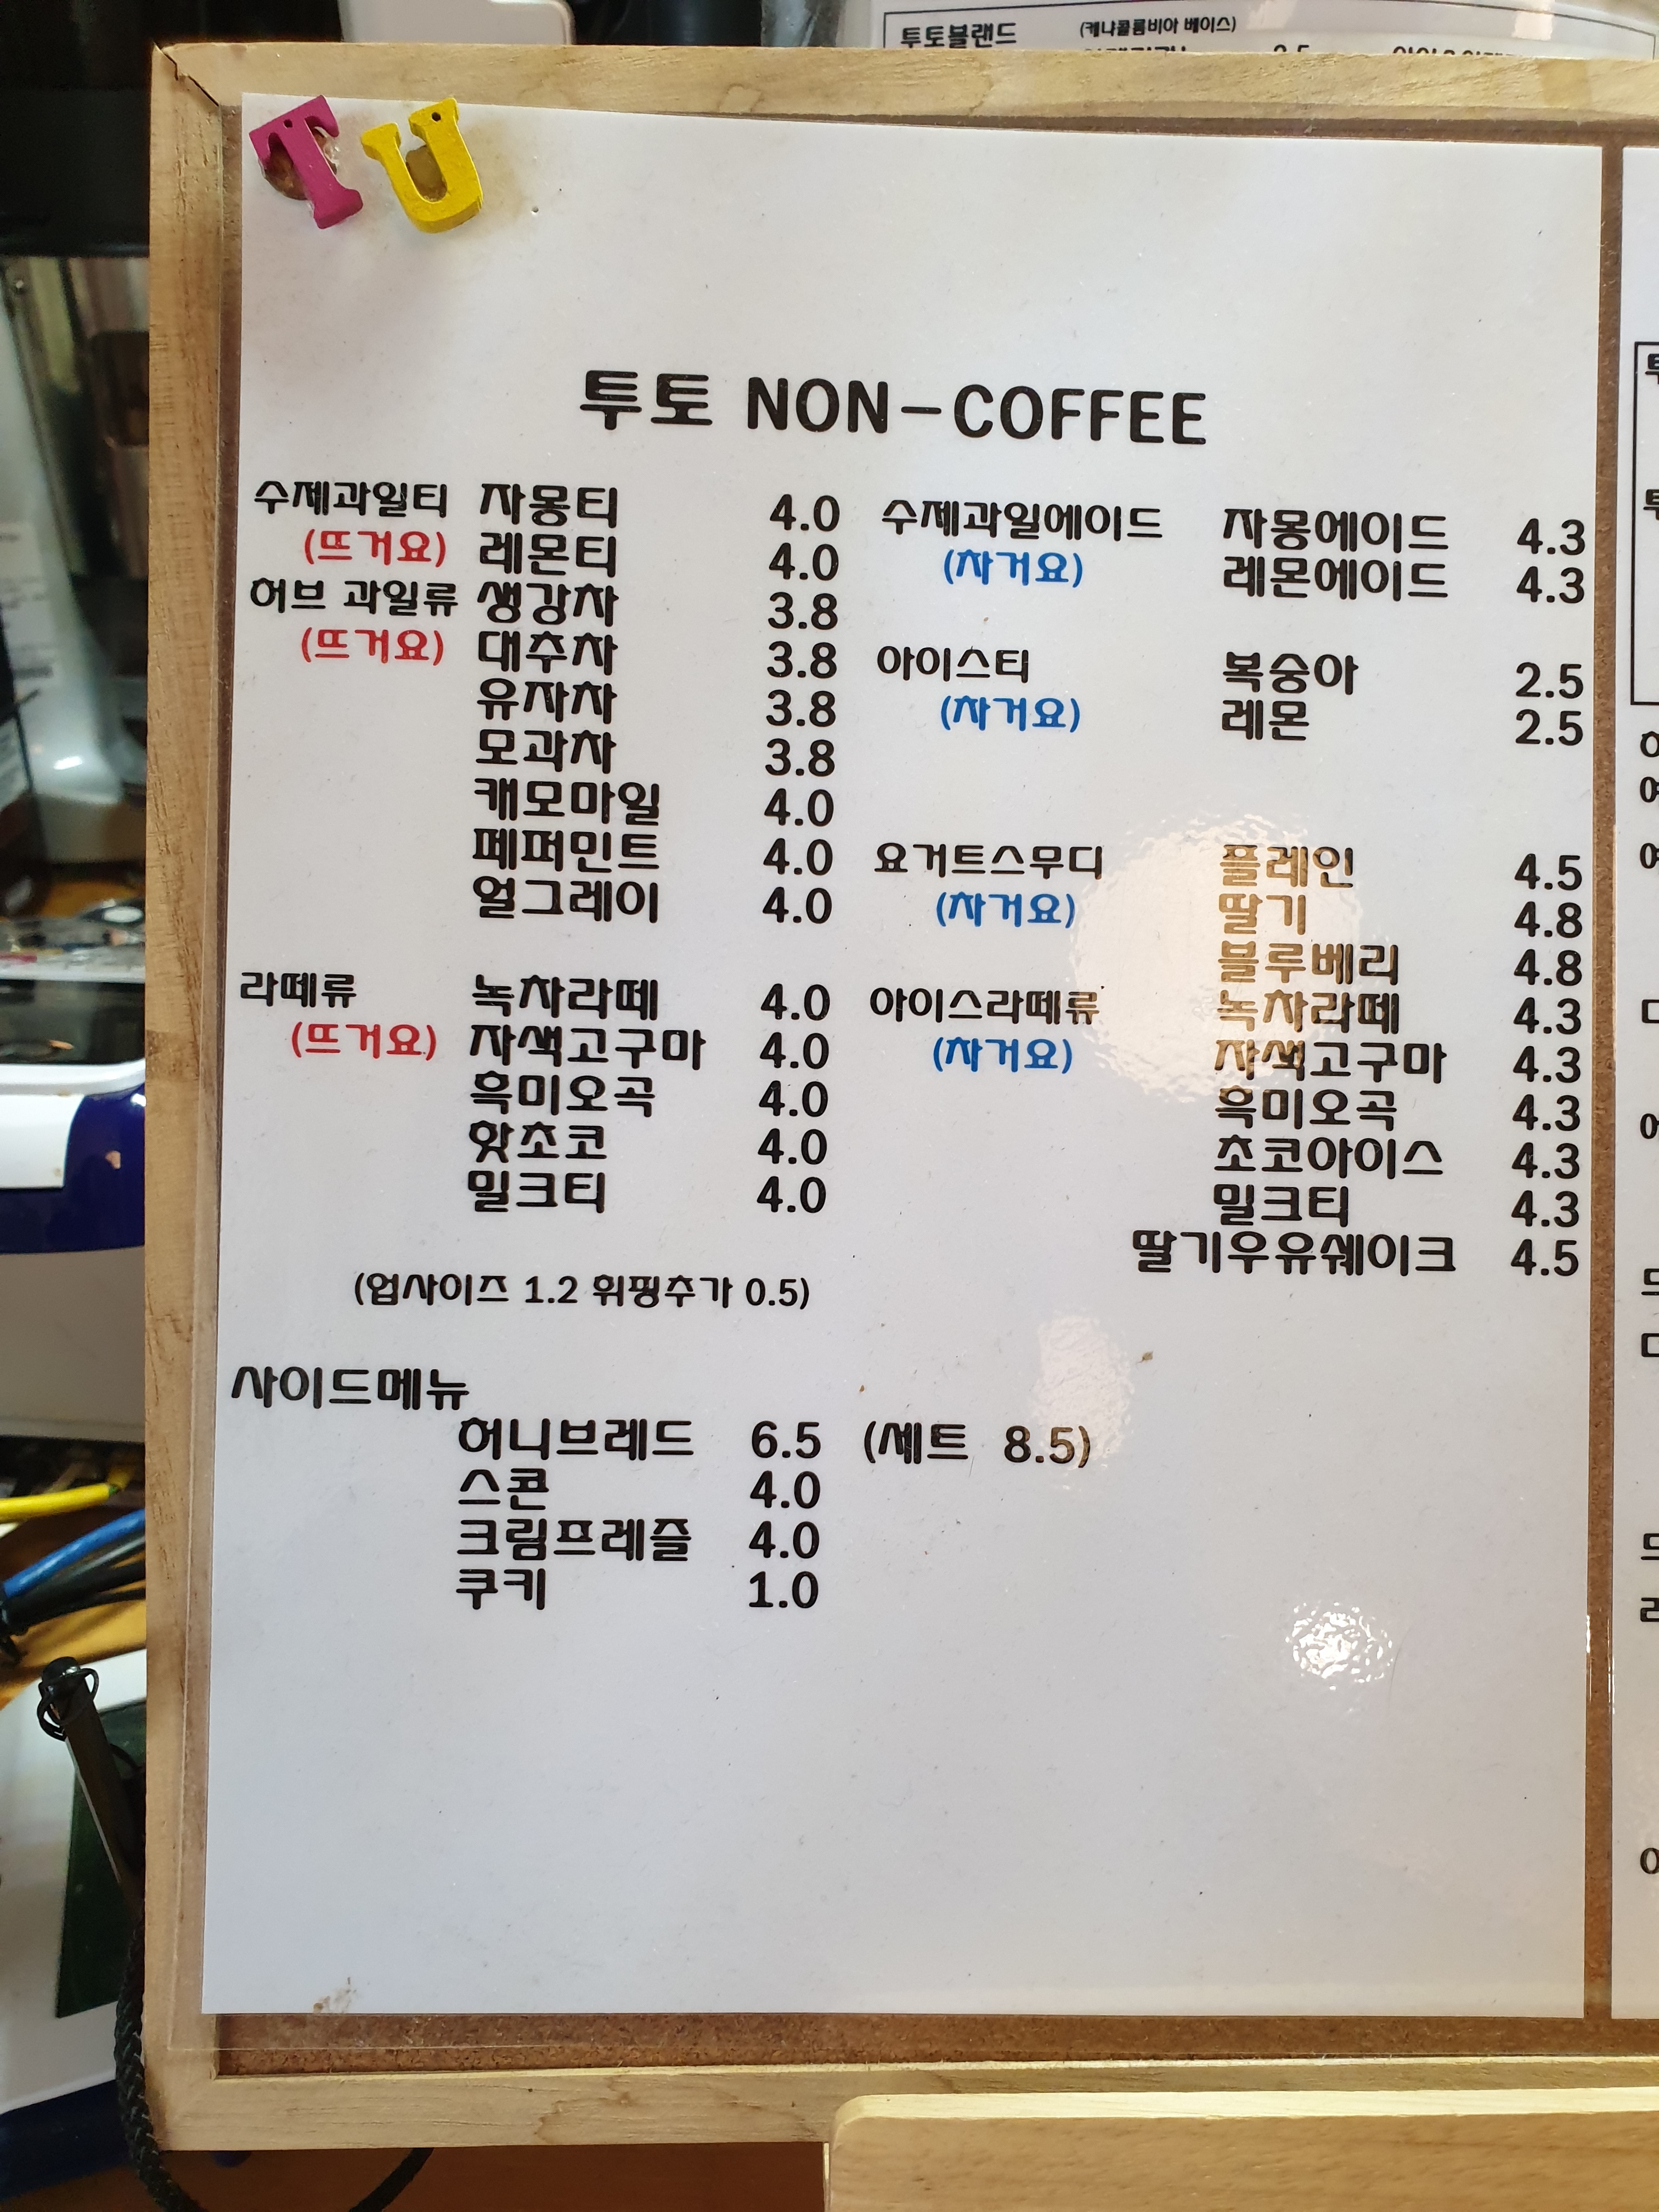 투토블랜드 (케냐콜롬비아 베이스)
TU
투토 NON-COFFEE
수제과일티 자몽티 4.0
(뜨거요) 레몬티 4.0
허브 과일류 생강차 3.8
(뜨거요) 대추차 3.8
유자차 3.8
모과차 3.8
캐모마일 4.0
페퍼민트 4.0
얼그레이 4.0
라떼류 녹차라떼 4.0
(뜨거요) 자색고구마 4.0
흑미오곡 4.0
핫초코 4.0
밀크티 4.0
(업사이즈 1.2 휘핑추가 0.5)
수제과일에이드 자몽에이드 4.3
(차거요) 레몬에이드 4.3
아이스티 복숭아 2.5
(차거요) 레몬 2.5
요거트스무디 플레인 4.5
(차거요) 딸기 4.8
블루베리 4.8
아이스라떼류 녹차라떼 4.3
(차거요) 자색고구마 4.3
흑미오곡 4.3
초코아이스 4.3
밀크티 4.3
딸기우유쉐이크 4.5
사이드메뉴
허니브레드 6.5 (세트 8.5)
스콘 4.0
크림프레즐 4.0
쿠키 1.0